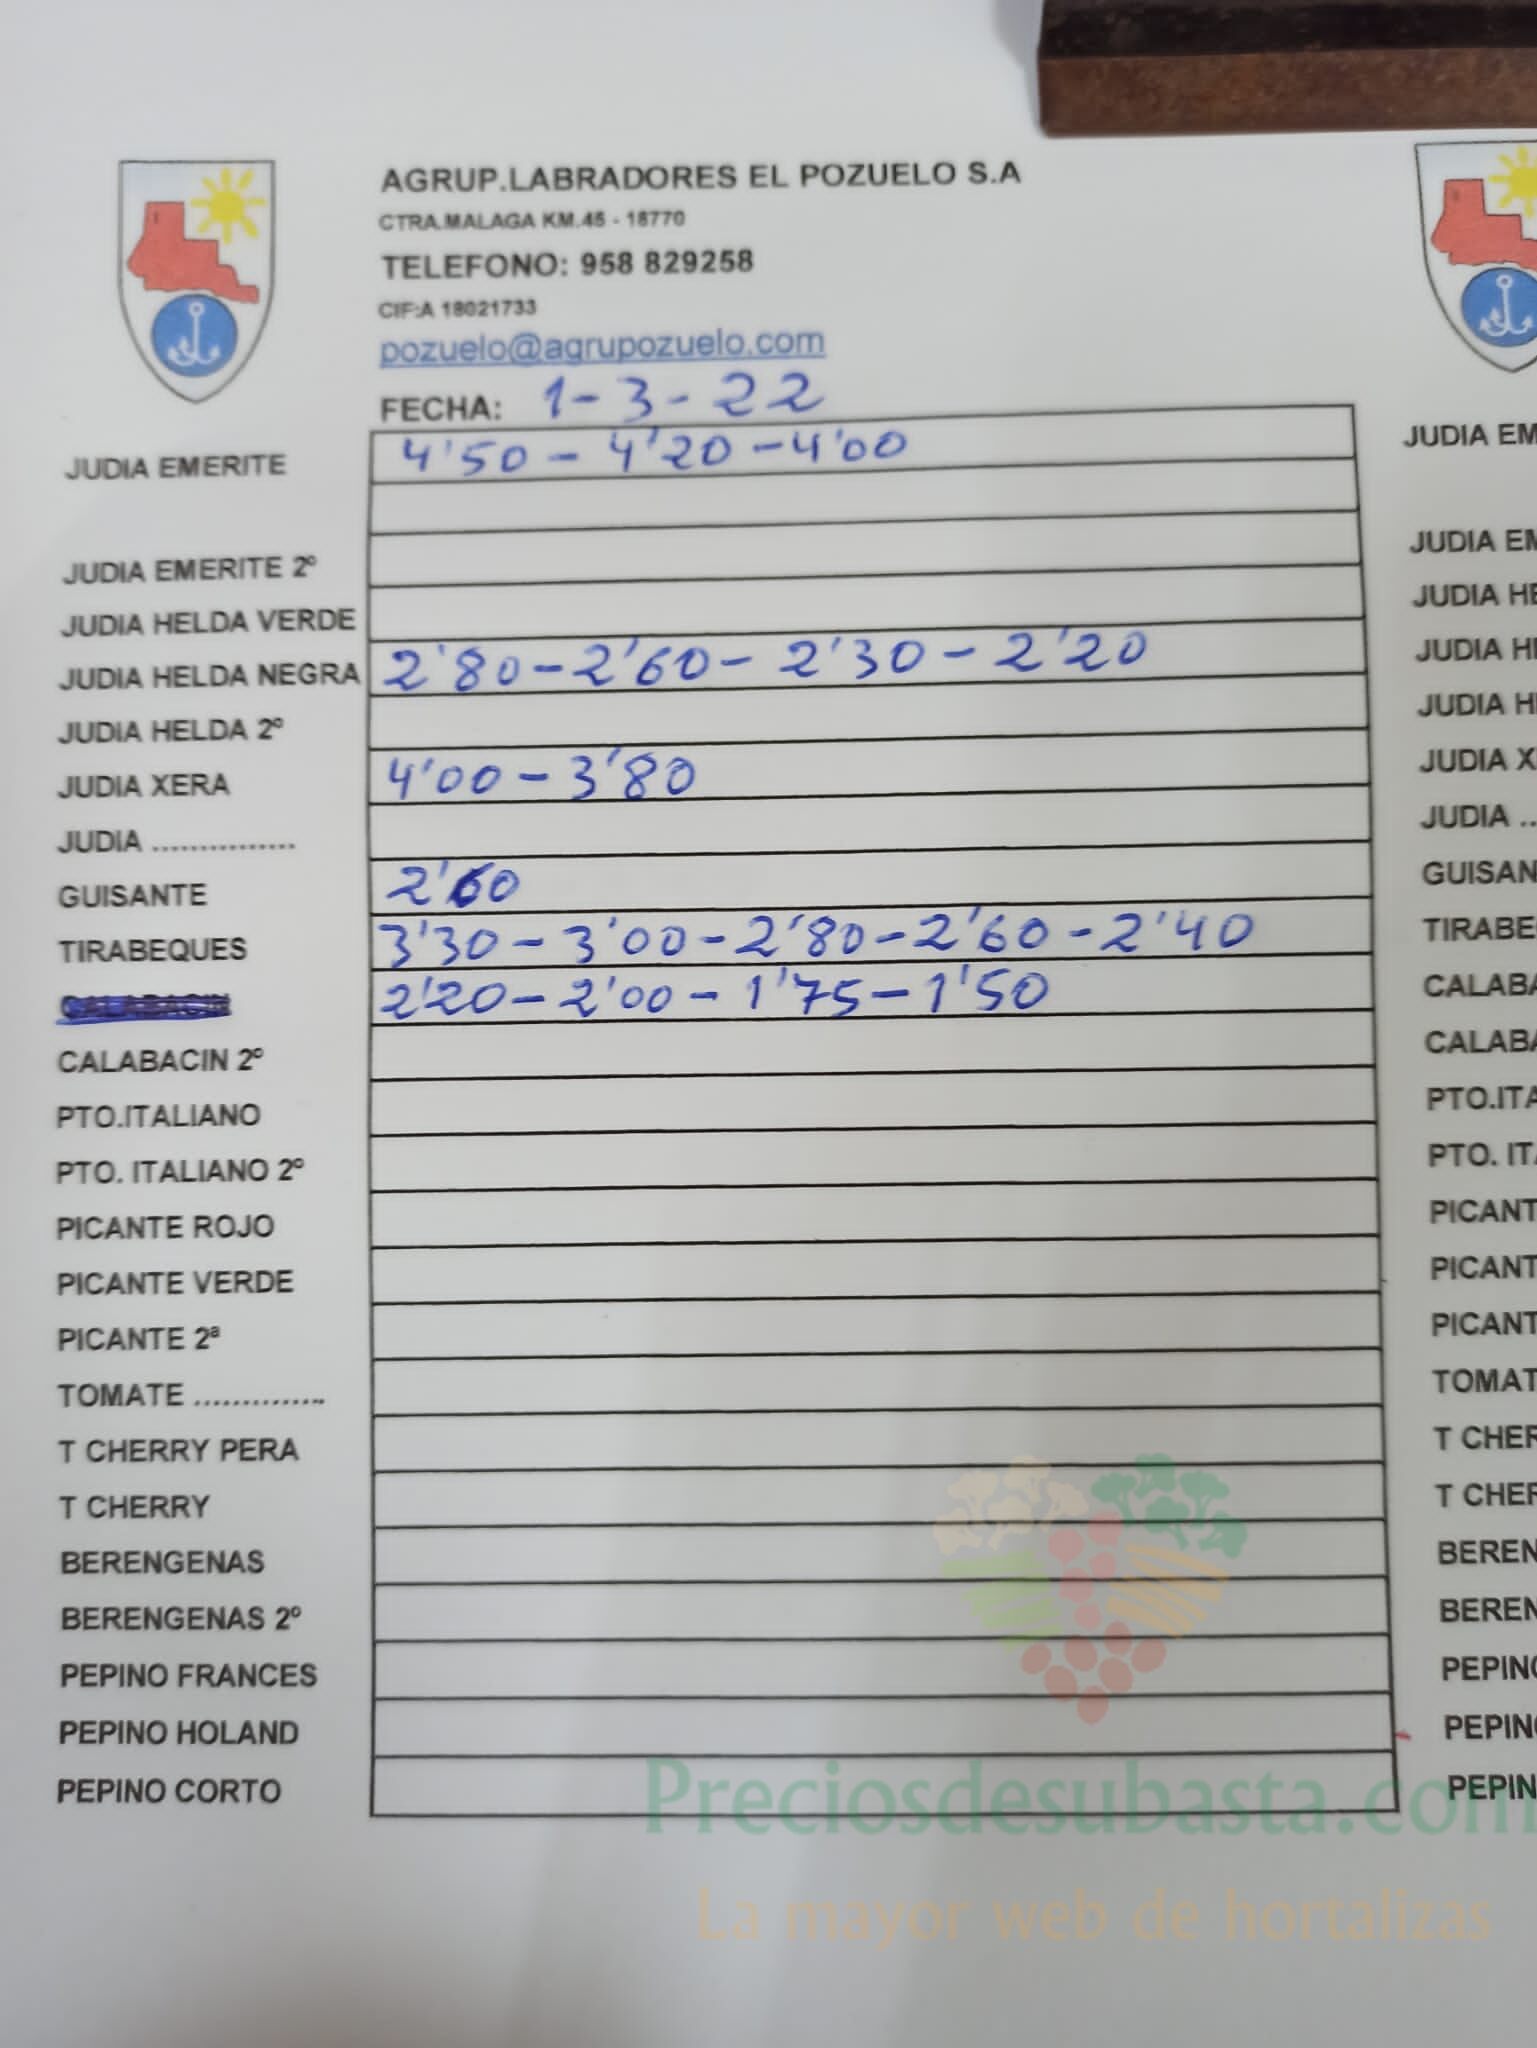 AGRUP.LABRADORES EL POZUELO S.A
CTRA.MALAGA KM.45 - 18770
TELEFONO: 958 829258
CIF:A 18021733
pozuelo@agrupozuelo.com
FECHA: 1-3-22
JUDIA EMERITE 4'50 - 4'20 - 4'00
JUDIA EMERITE 2º
JUDIA HELDA VERDE
JUDIA HELDA NEGRA 2'80 - 2'60 - 2'30 - 2'20
JUDIA HELDA 2º
JUDIA XERA 4'00 - 3'80
JUDIA ...............
GUISANTE 2'60
TIRABEQUES 3'30 - 3'00 - 2'80 - 2'60 - 2'40
CALABACIN 2'20 - 2'00 - 1'75 - 1'50
CALABACIN 2º
PTO.ITALIANO
PTO. ITALIANO 2º
PICANTE ROJO
PICANTE VERDE
PICANTE 2ª
TOMATE ..............
T CHERRY PERA
T CHERRY
BERENGENAS
BERENGENAS 2º
PEPINO FRANCES
PEPINO HOLAND
PEPINO CORTO
JUDIA EM
JUDIA EM
JUDIA HE
JUDIA HE
JUDIA HE
JUDIA X
JUDIA ..
GUISAN
TIRABE
CALABA
CALABA
PTO.ITA
PTO. IT
PICANT
PICANT
PICANT
TOMAT
T CHER
T CHER
BEREN
BEREN
PEPINO
PEPINO
PEPIN
Preciosdesubasta.com
La mayor web de hortalizas